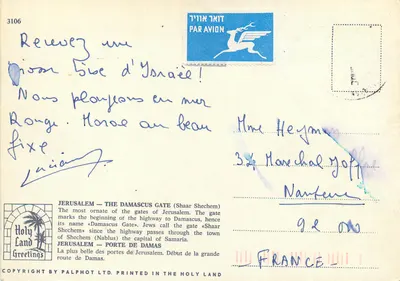 3106
Recevez une
grosse bise d'Israël !
Nous plongeons en mer
Rouge. Morale au beau
fixe
דואר אוויר
PAR AVION
Mme Heyman
34 Marechal Joffre
Nanterre
92 000
- FRANCE -
JERUSALEM — THE DAMASCUS GATE (Shaar Shechem)
The most ornate of the gates of Jerusalem. The gate
marks the beginning of the highway to Damascus, hence
its name «Damascus Gate». Jews call the gate «Shaar
Shechem» since the highway passes through the town
of Shechem (Nablus) the capital of Samaria.
JERUSALEM — PORTE DE DAMAS
La plus belle des portes de Jerusalem. Début de la grande
route de Damas.
Holy
Land
Greetings
COPYRIGHT BY PALPHOT LTD. PRINTED IN THE HOLY LAND